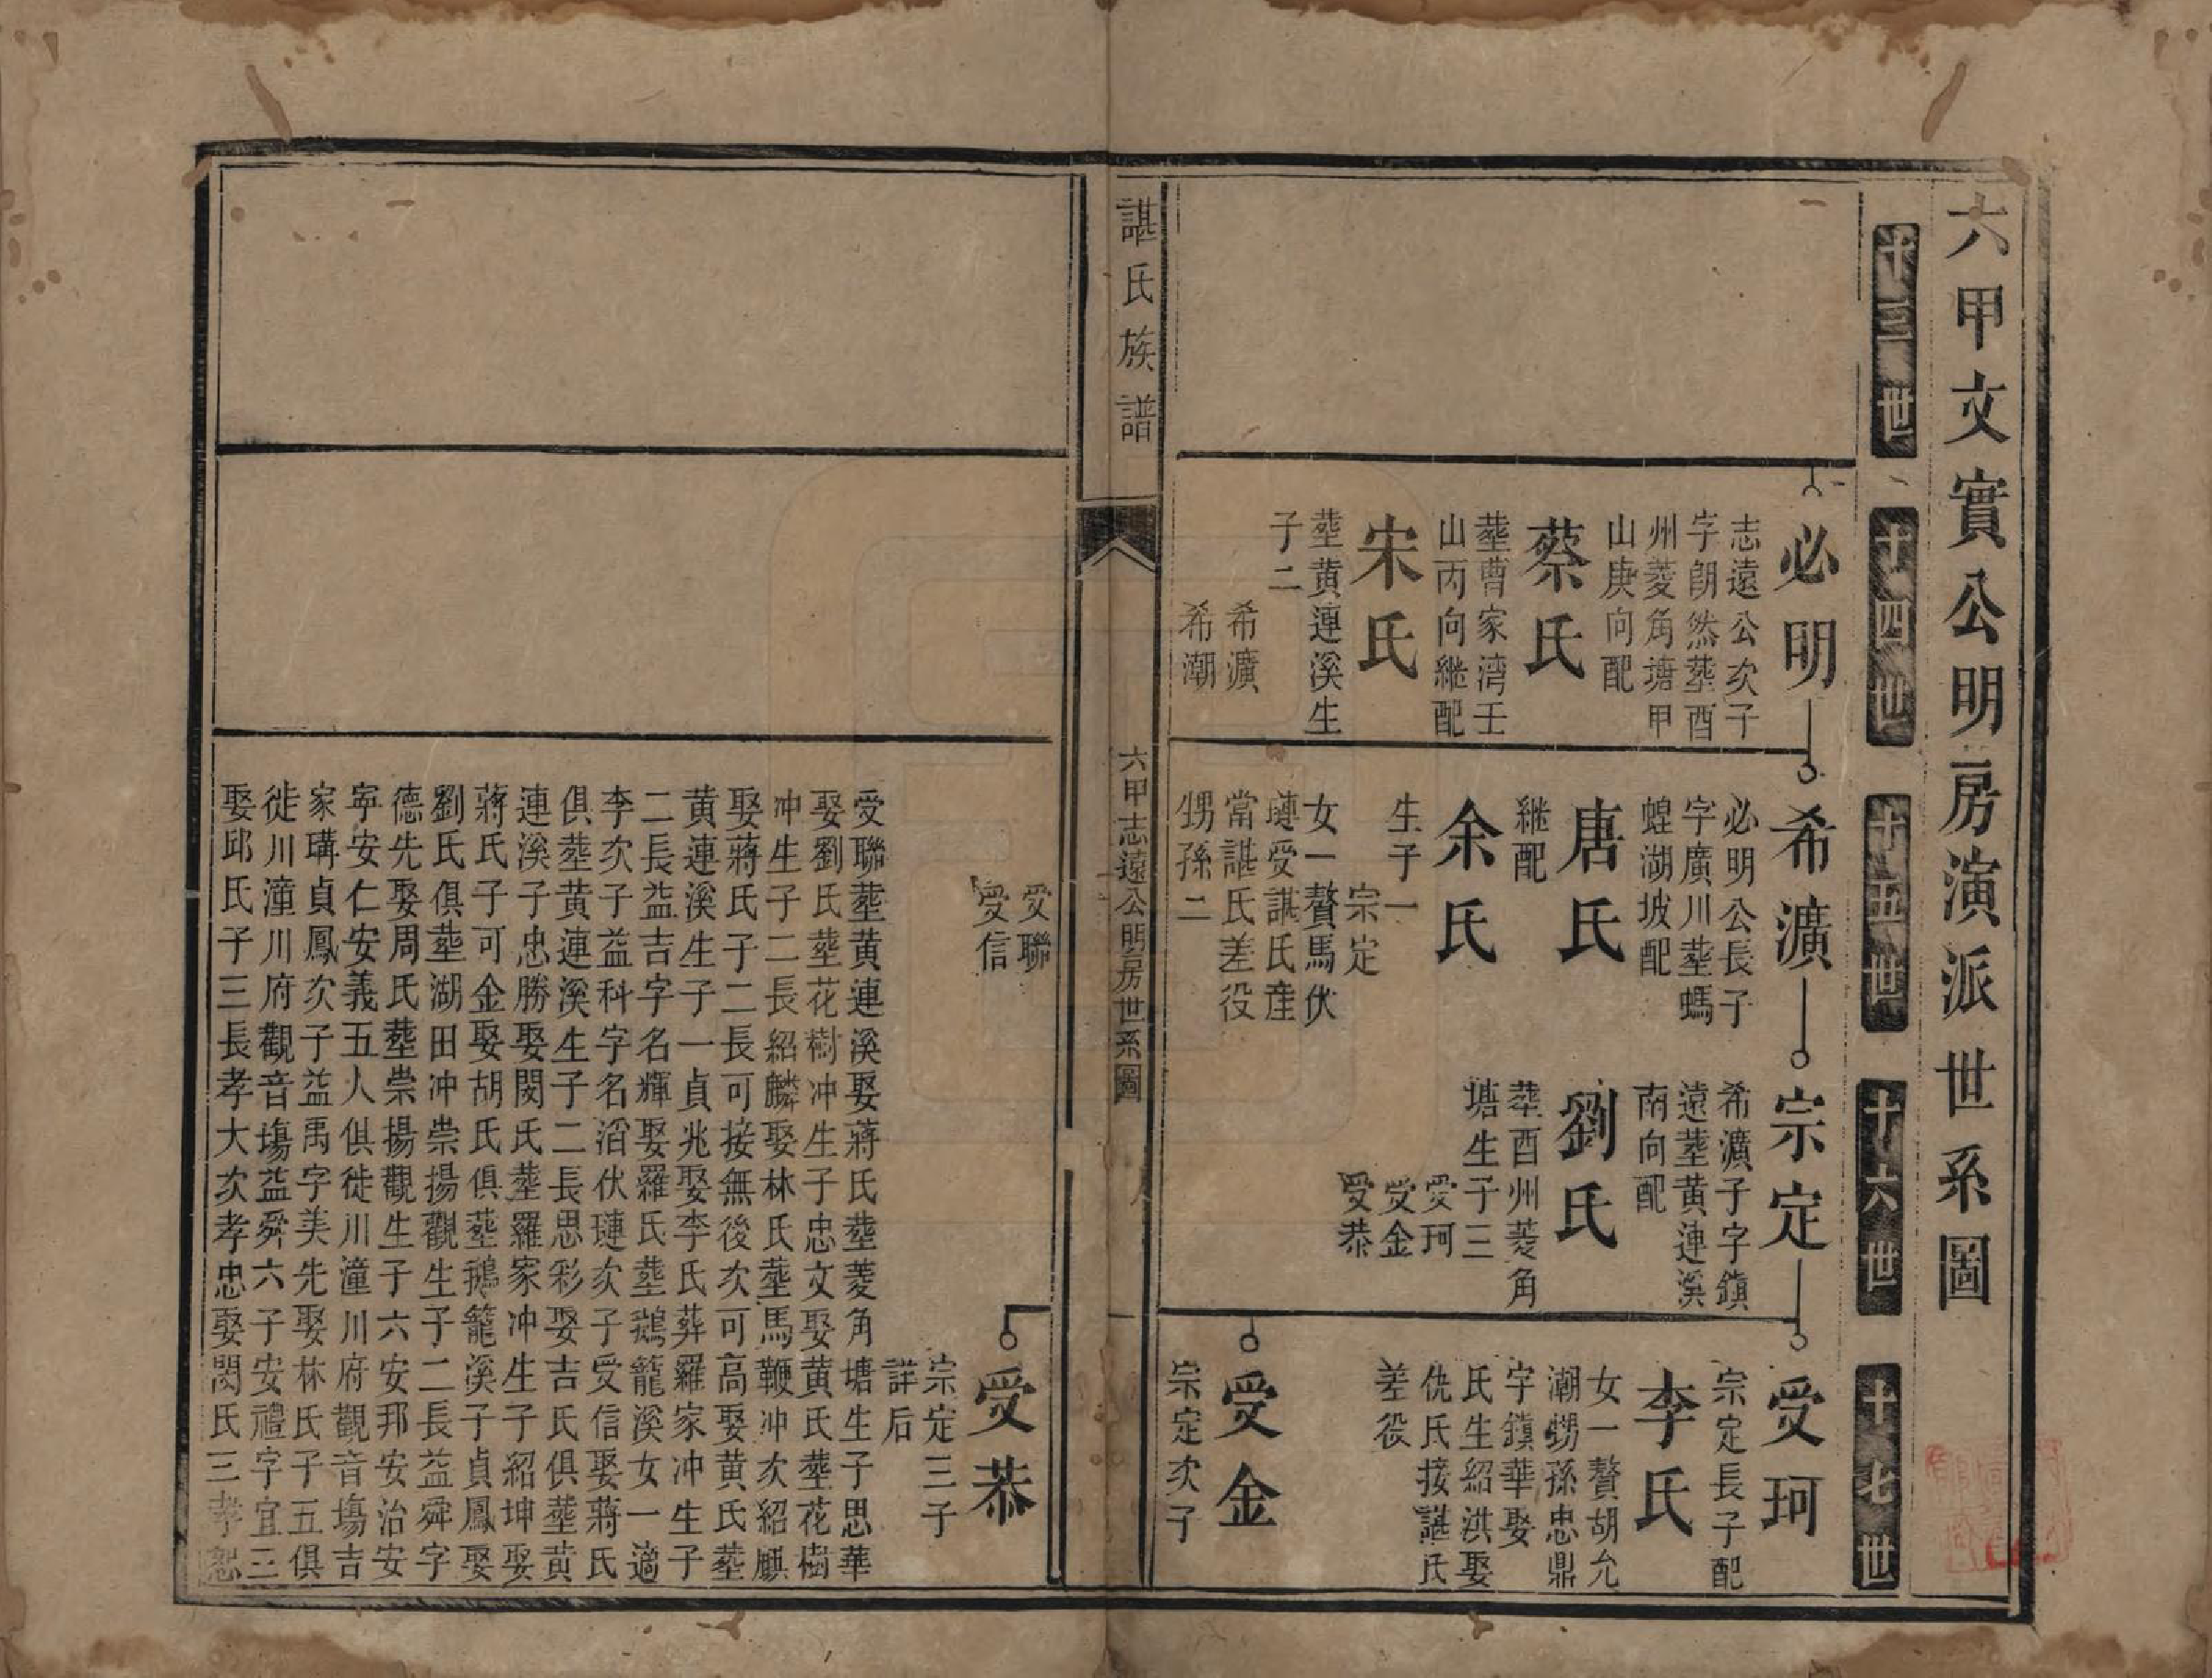 六甲文實公明二房演派世系圖
十三世
十四世
十五世
十六世
十七世
必明
志遠公次子
字朗然塟酉
州菱角塘甲
山庚向配
蔡氏
塟曹家湾壬
山丙向繼配
宋氏
塟黄連溪生
子二
希濵
希潮
希濵
必明公長子
字廣川塟螞
蝗湖坡配
唐氏
継配
余氏
生子一
宗定
女一贅馬伏
璉受諶氏產
當諶氏差役
甥孫二
宗定
希濵子字鎮
遠塟黄連溪
南向配
劉氏
塟酉州菱角
塘生子三
受珂
受金
受恭
受珂
宗定長子配
李氏
女一贅胡允
潮甥孫忠鼎
字鎮華娶
氏生紹洪娶
仇氏接諶氏
差役
受金
宗定次子
諶氏族譜
六甲志遠公明二房世系圖
八
受聯
受信
受恭
宗定三子
詳后
受聯塟黄連溪娶蔣氏塟菱角塘生子思華
娶劉氏塟花樹冲生子忠文娶黄氏塟花樹
冲生子二長紹麟娶林氏塟馬鞭冲次紹麒
娶蔣氏子二長可接無後次可高娶黄氏塟
黄連溪生子一貞兆娶李氏葬羅家冲生子
二長益吉字名輝娶羅氏塟鵝籠溪女一適
李次子益科字名滔伏璉次子受信娶蔣氏
俱塟黄連溪生子二長思彩娶吉氏俱塟黄
連溪子忠勝娶閔氏塟羅家冲生子紹坤娶
蔣氏子可金娶胡氏俱塟鵝籠溪子貞鳳娶
劉氏俱塟湖田冲崇揚觀生子二長益舜字
德先娶周氏塟崇揚觀生子六安邦安治安
寕安仁安義五人俱徙川潼川府觀音塲吉
家瑪貞鳳次子益禹字美先娶林氏子五俱
徙川潼川府觀音塲益舜六子安禮字宜三
娶邱氏子三長孝大次孝忠娶閔氏三孝恕